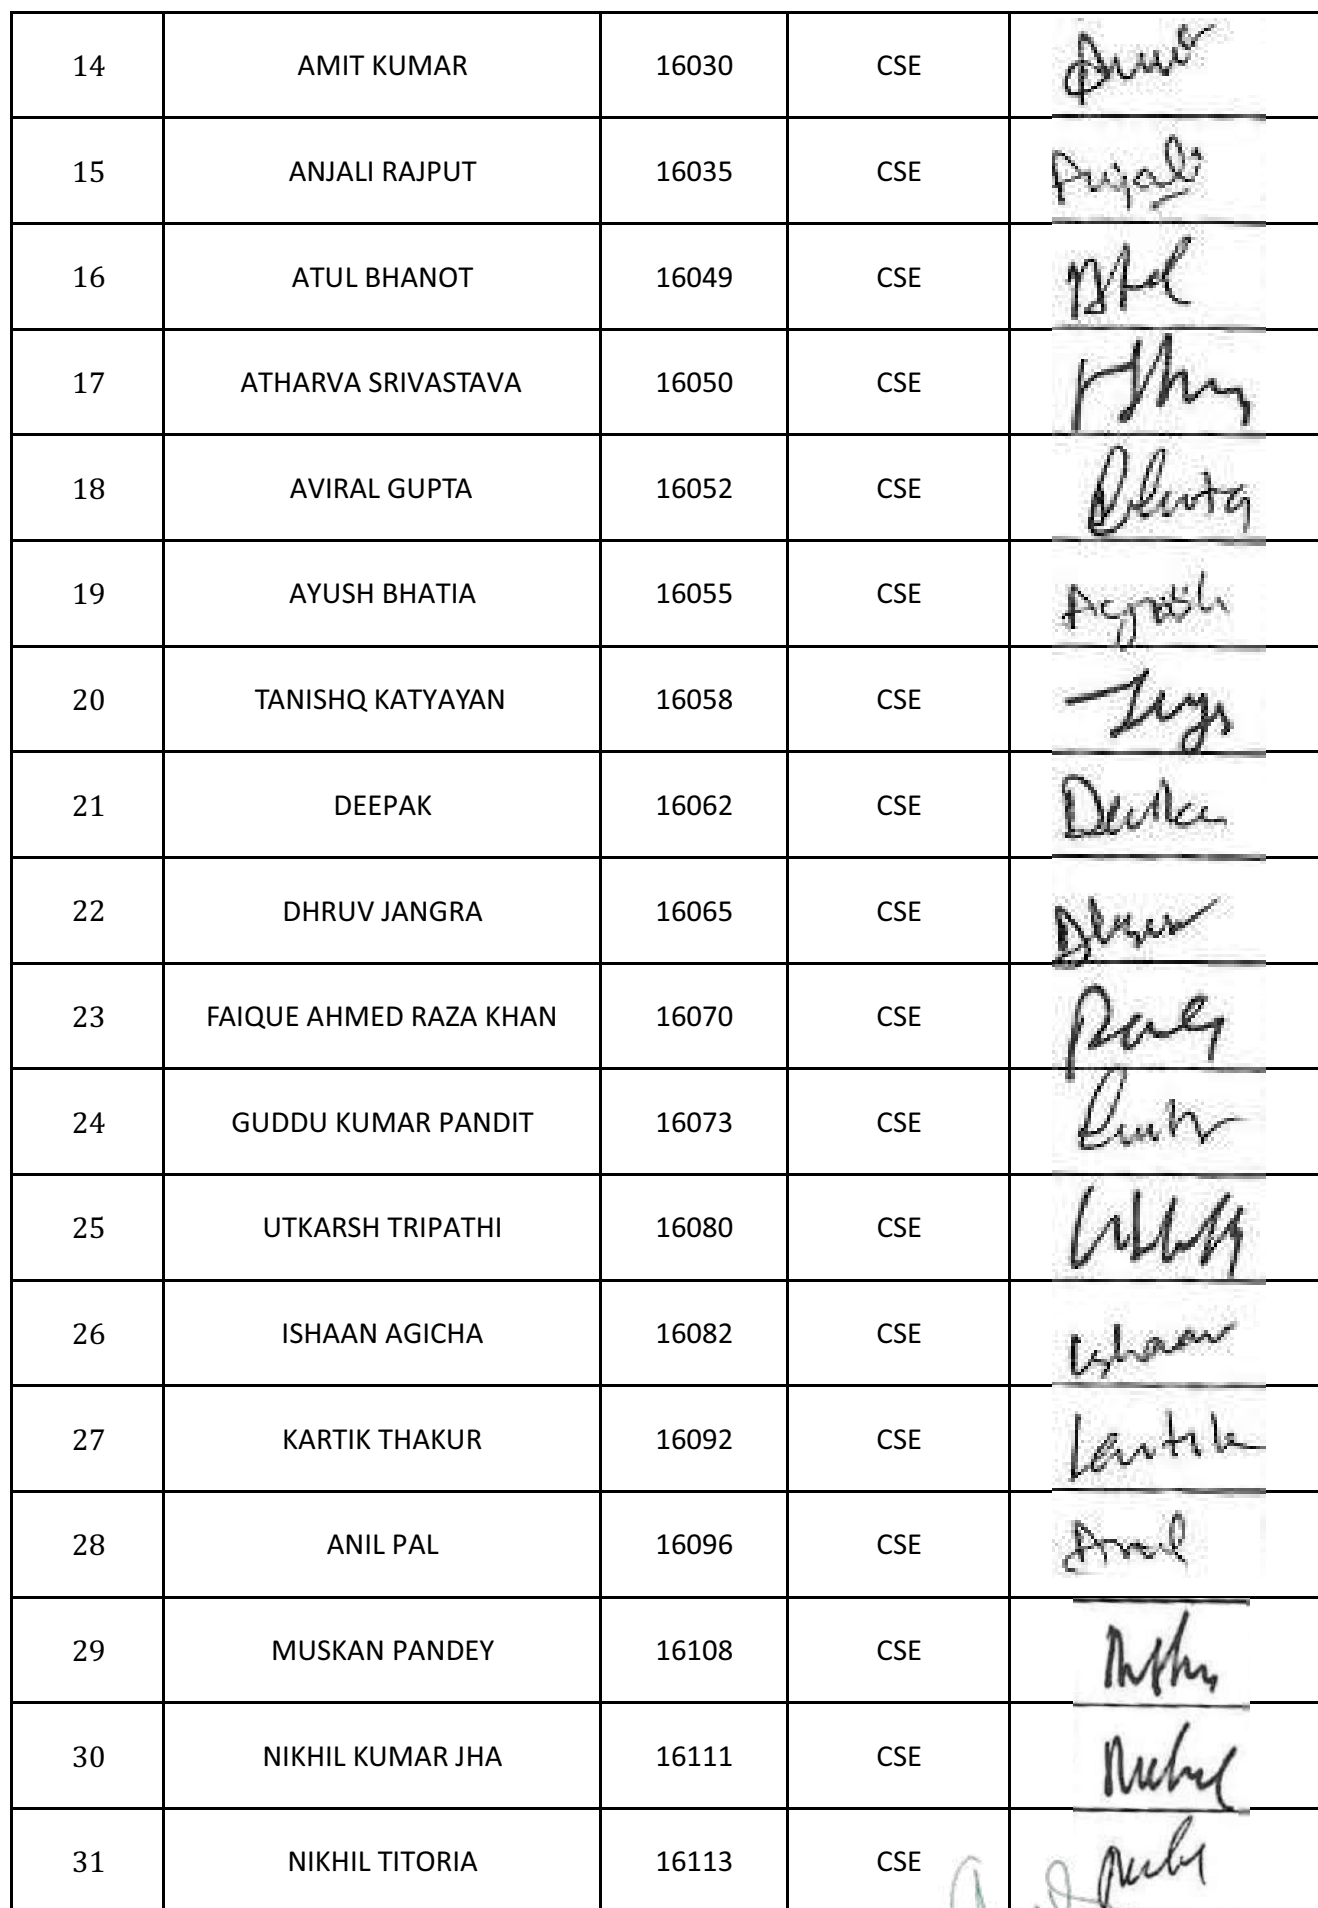 14 AMIT KUMAR 16030 CSE
15 ANJALI RAJPUT 16035 CSE Anjali
16 ATUL BHANOT 16049 CSE
17 ATHARVA SRIVASTAVA 16050 CSE
18 AVIRAL GUPTA 16052 CSE
19 AYUSH BHATIA 16055 CSE
20 TANISHQ KATYAYAN 16058 CSE
21 DEEPAK 16062 CSE
22 DHRUV JANGRA 16065 CSE
23 FAIQUE AHMED RAZA KHAN 16070 CSE
24 GUDDU KUMAR PANDIT 16073 CSE
25 UTKARSH TRIPATHI 16080 CSE
26 ISHAAN AGICHA 16082 CSE Ishaan
27 KARTIK THAKUR 16092 CSE Kartik
28 ANIL PAL 16096 CSE Anil
29 MUSKAN PANDEY 16108 CSE
30 NIKHIL KUMAR JHA 16111 CSE
31 NIKHIL TITORIA 16113 CSE